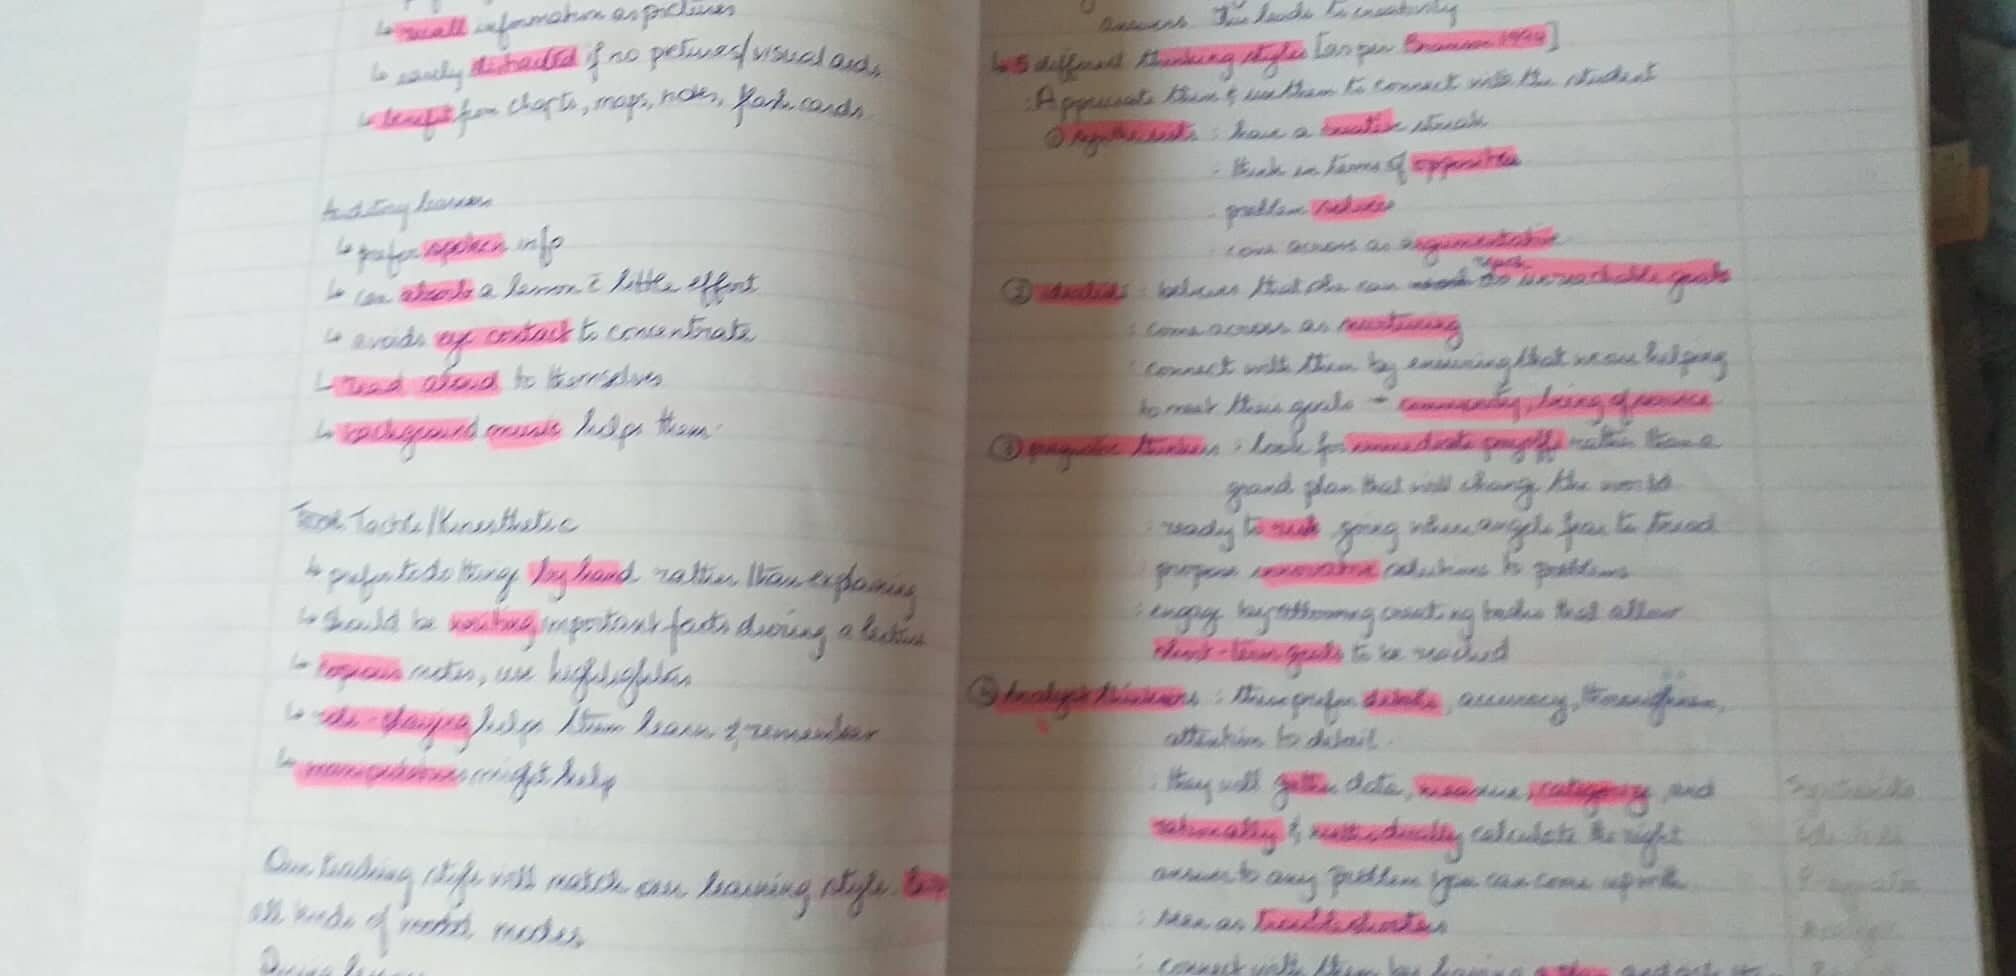 ↳ recall information as pictures
↳ easily distracted if no pictures/visual aids
↳ benefit from charts, maps, notes, flash cards
Auditory learners
↳ prefer spoken info
↳ can absorb a lesson c̄ little effort
↳ avoids eye contact to concentrate
↳ read aloud to themselves
↳ background music helps them
Tactile/Kinesthetic
↳ prefer to do things by hand rather than explaining
↳ should be writing important facts during a lecture
↳ copious notes, use highlighters
↳ role-playing helps them learn & remember
↳ might help
Our teaching style will match our learning style.
all kinds of modes
answers. This leads to creativity
↳ 5 different thinking styles [as per 1994]
: Appreciate them & use them to connect with the student
① synthesists : have a creative streak
· think in terms of opposites
· problem
· come across as argumentative
② idealists : believes that she can reach unreachable goals
: come across as nurturing
: connect with them by ensuring that we are helping
to meet their goals - community, being of service
③ pragmatic thinkers : look for immediate payoff rather than a
grand plan that will change the world
: ready to risk going where angels fear to tread
: propose innovative solutions to problems
: engage by that allow
short-term goals to be reached
④ Analyst thinkers : they prefer details, accuracy, thoroughness,
attention to detail.
: they will gather data, measure, category, and
rationally & methodically calculate the right
answer to any problem you can come up with
: seen as
: connect with them by having a plan
Synthesists
Idealists
Pragmatic